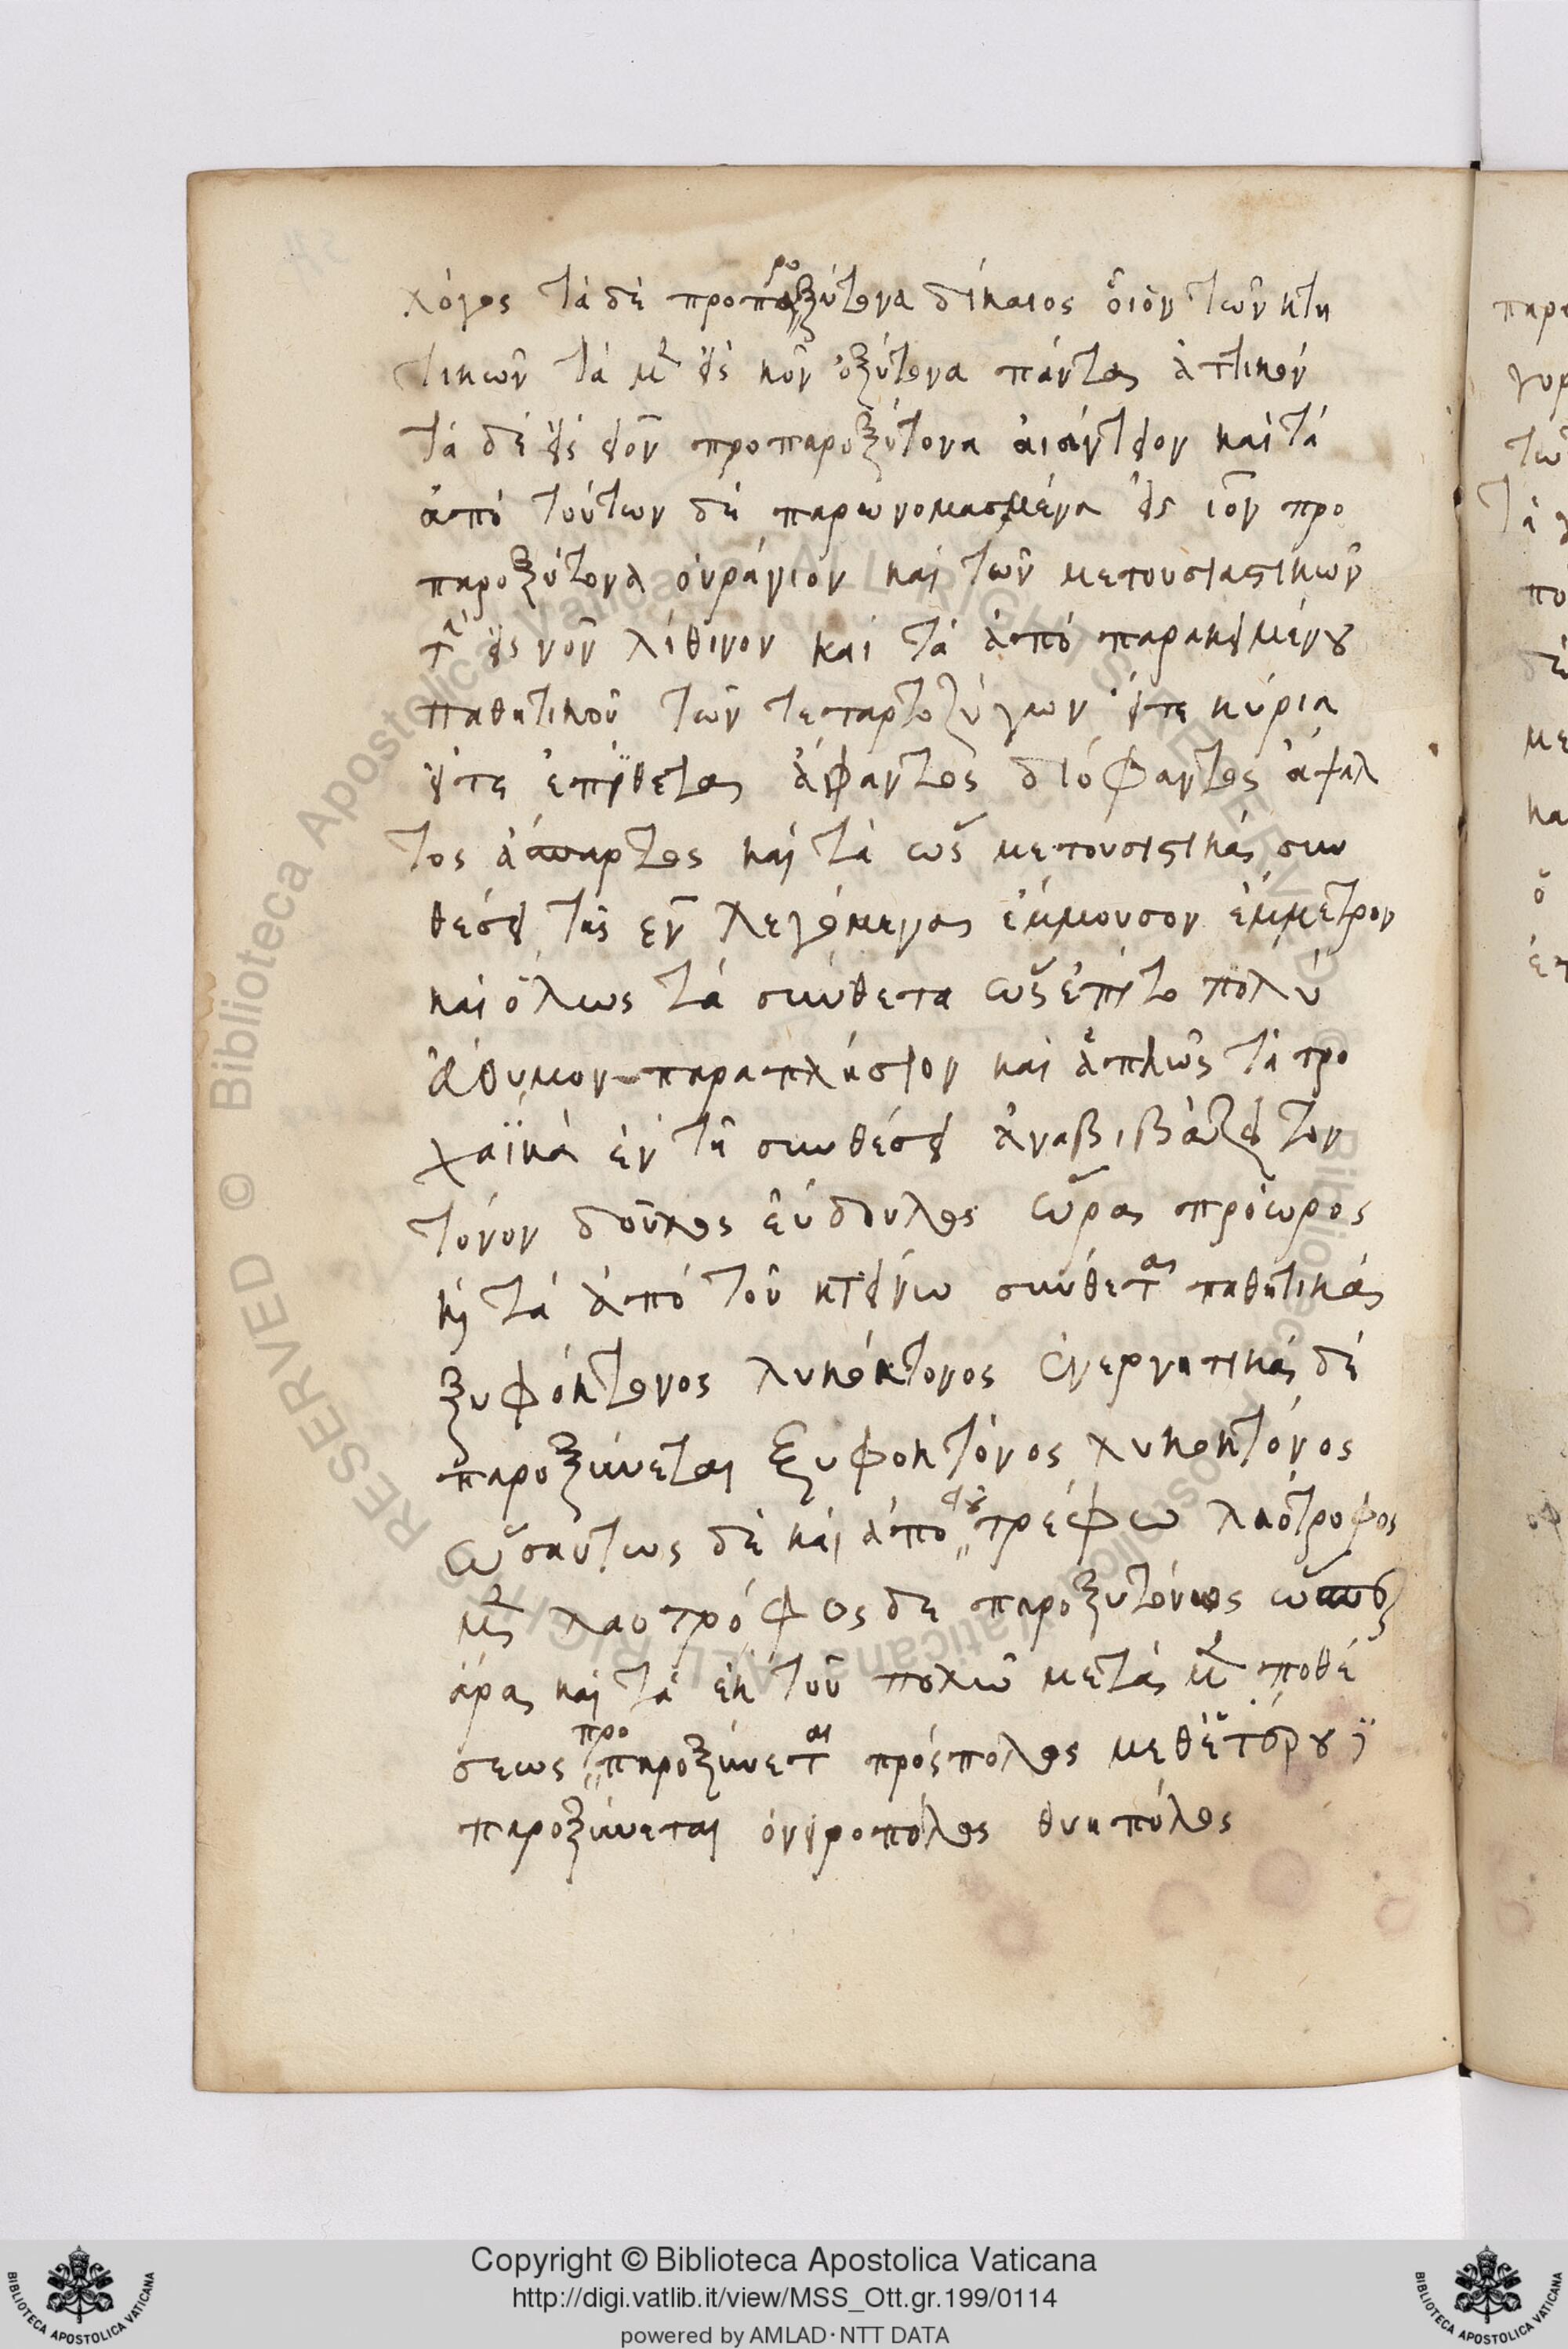 λόγος τὰ δὲ προπαροξύτονα δίκαιος οἷον τῶν κτη
τικῶν τὰ μὲν εἰς κον ὀξύτονα πάντα ἀττικόν
τὰ δὲ εἰς ειον προπαροξύτονα αἰάντειον καὶ τὰ
ἀπὸ τούτων δὲ παρωνομασμένα εἰς ιον προ
παροξύτονα οὐράνιον καὶ τῶν μετουσιαστικῶν
τὰ εἰς νον λίθινον καὶ τὰ ἀπὸ παρακειμένου
παθητικοῦ τῶν τεταρτοζύγων εἴτε κύρια
εἴτε ἐπίθετα ἄφαντος διόφαντος ἄψαλ
τος καὶ τὰ ὡς
θέσει τῆς εν λεγόμενα ἔμμουσον ἔμμετρον
καὶ ὅλως τὰ σύνθετα ὡς ἐπὶ τὸ πολὺ
ἄθυμον παραπλήσιον καὶ ἁπλῶς τὰ τρο
χαϊκὰ ἐν τῇ συνθέσει ἀναβιβάζει τὸν
τόνον δοῦλος εὔδουλος ὥρα πρόωρος
κ τὰ ἀπὸ τοῦ κτείνω σύνθετα παθητικὰ
ξυφόκτονος λυκόκτονος ἐνεργητικὰ δὲ
παροξύνεται ξυφοκτόνος λυκοκτόνος
ὡσαύτως δὲ καὶ ἀπὸ τοῦ τρέφω λαότροφος
μὲν λαοτρόφος δὲ παροξυτόνως
ἄρα καὶ τὰ ἐκ τοῦ πολῶ μετὰ μὲν προθέ
σεως προπαροξύνεται πρόσπολος μεθ' ἑτέρου
παροξύνεται ὀνειροπόλος θυηπόλος
Copyright © Biblioteca Apostolica Vaticana
http://digi.vatlib.it/view/MSS_Ott.gr.199/0114
powered by AMLAD·NTT DATA